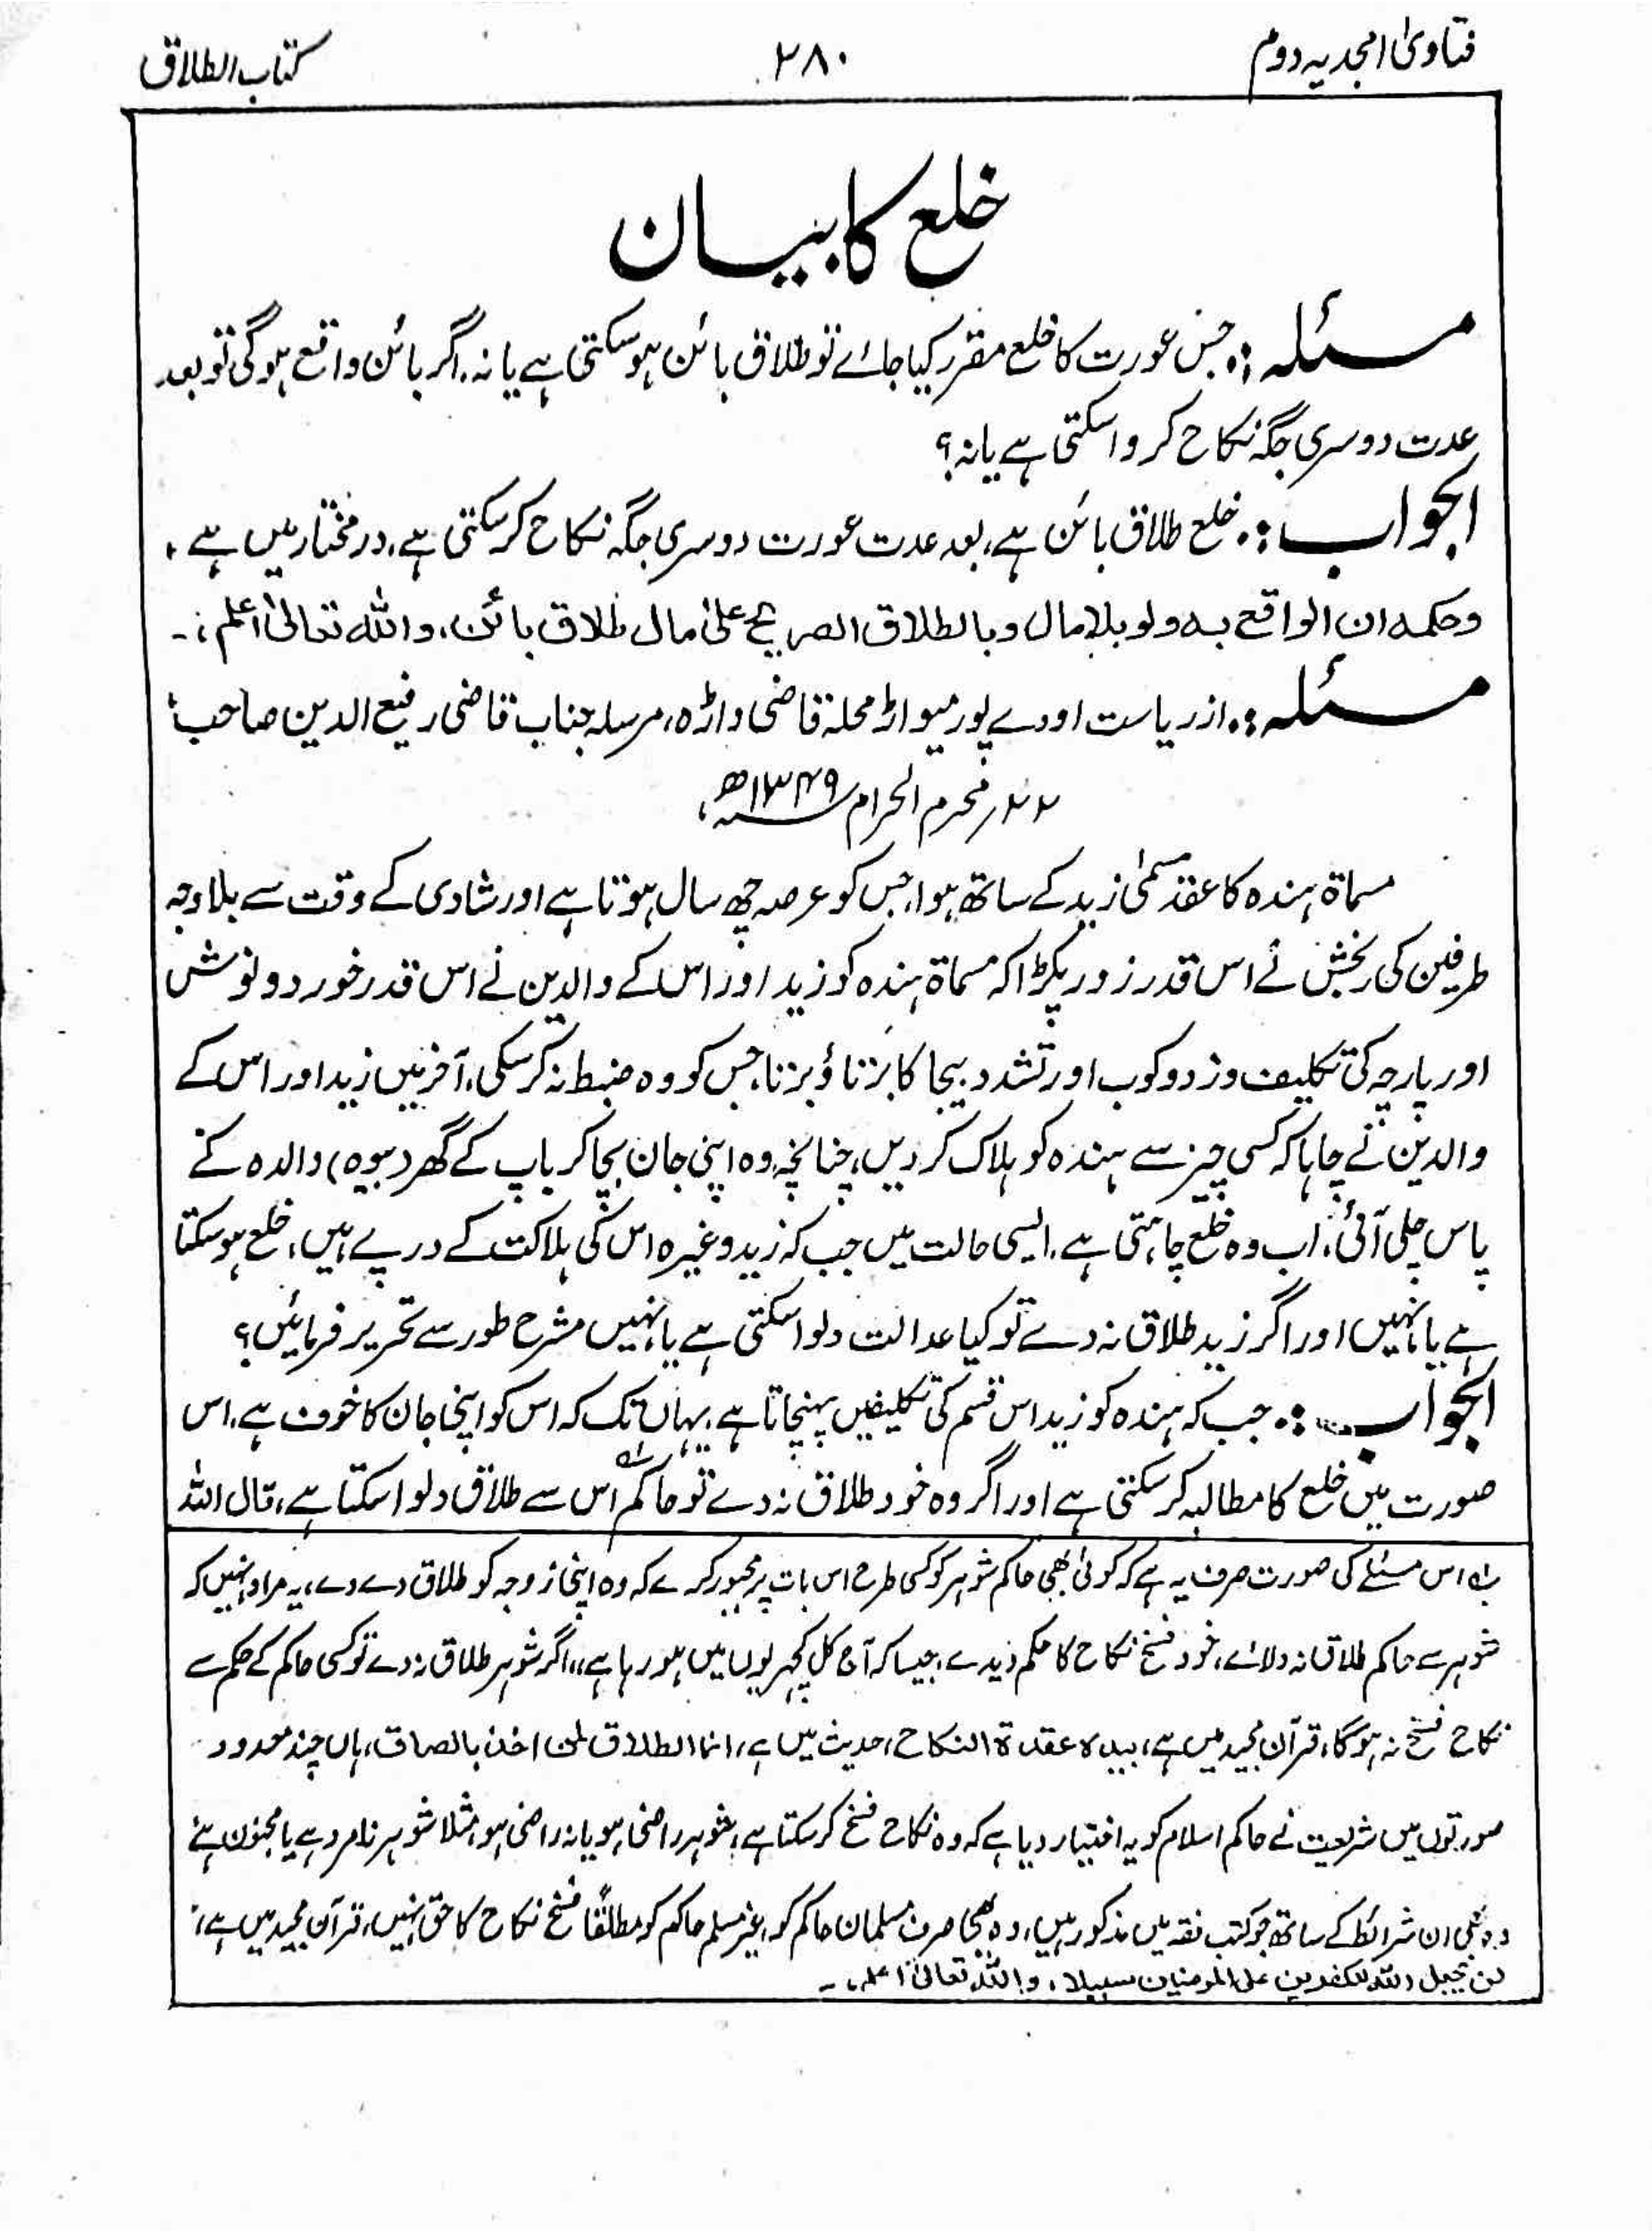 فتاویٰ امجدیہ دوم
۲۸۰
کتاب الطلاق
خلع کا بیان
مسئلہ:۔ جس عورت کا خلع مقرر کیا جائے تو طلاق بائن ہو سکتی ہے یا نہ۔ اگر بائن واقع ہوگی تو بعد
عدت دوسری جگہ نکاح کروا سکتی ہے یا نہ؟
الجواب:۔ خلع طلاق بائن ہے، بعد عدت عورت دوسری جگہ نکاح کر سکتی ہے، در مختار میں ہے،
وحکمہ ان الواقع بہ ولو بلا مال وبالطلاق الصریح علیٰ مال طلاق بائن، واللہ تعالیٰ اعلم؛۔
مسئلہ:۔ از ریاست اودے پور میواڑ محلہ قاضی واڑہ، مرسلہ جناب قاضی رفیع الدین صاحب،
۲۲؍ محرم الحرام ۱۳۴۹ھ،
مسماۃ ہندہ کا عقد مسمیٰ زید کے ساتھ ہوا، جس کو عرصہ چھ سال ہوتا ہے اور شادی کے وقت سے بلا وجہ
طرفین کی رنجش نے اس قدر زور پکڑا کہ مسماۃ ہندہ کو زید اور اس کے والدین نے اس قدر خورد و نوش
اور پارچہ کی تکلیف و زد و کوب اور تشدد بیجا کا برتاؤ برتا، جس کو وہ ضبط نہ کر سکی، آخر میں زید اور اس کے
والدین نے چاہا کہ کسی چیز سے ہندہ کو ہلاک کر دیں، چنانچہ وہ اپنی جان بچا کر باپ کے گھر (بیوہ) والدہ کے
پاس چلی آئی، اب وہ خلع چاہتی ہے۔ ایسی حالت میں جب کہ زید وغیرہ اس کی ہلاکت کے درپے ہیں، خلع ہو سکتا
ہے یا نہیں اور اگر زید طلاق نہ دے تو کیا عدالت دلوا سکتی ہے یا نہیں مشرح طور سے تحریر فرمائیں؟
الجواب:۔ جب کہ ہندہ کو زید اس قسم کی تکلیفیں پہنچاتا ہے یہاں تک کہ اس کو اپنی جان کا خوف ہے۔ اس
صورت میں خلع کا مطالبہ کر سکتی ہے اور اگر وہ خود طلاق نہ دے تو حاکم لہ اس سے طلاق دلوا سکتا ہے، قال اللہ
لہ اس مسئلے کی صورت صرف یہ ہے کہ کوئی بھی حاکم شوہر کو کسی طرح اس بات پر مجبور کرے کہ وہ اپنی زوجہ کو طلاق دے دے، یہ مراد نہیں کہ
شوہر سے حاکم طلاق نہ دلائے، خود فسخ نکاح کا حکم دیدے، جیسا کہ آج کل کچہریوں میں ہو رہا ہے،، اگر شوہر طلاق نہ دے تو کسی حاکم کے حکم سے
نکاح فسخ نہ ہوگا، قرآن مجید میں ہے، بیدہ عقدۃ النکاح، حدیث میں ہے، انما الطلاق لمن اخذ بالساق، ہاں چند معدود
صورتوں میں شریعت نے حاکم اسلام کو یہ اختیار دیا ہے کہ وہ نکاح فسخ کر سکتا ہے، شوہر راضی ہو یا نہ راضی ہو، مثلا شوہر نامرد ہے یا مجنون ہے
وہ بھی ان شرائط کے ساتھ جو کتب فقہ میں مذکور ہیں، وہ بھی صرف مسلمان حاکم کو، غیر مسلم حاکم کو مطلقًا فسخ نکاح کا حق نہیں، قرآن مجید میں ہے،
لن یجعل اللہ للکفرین علی المومنین سبیلا، واللہ تعالیٰ اعلم،۔